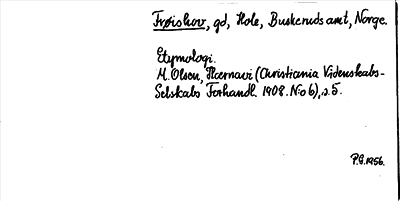 Frøishov, gd, Hole, Buskeruds amt, Norge.
Etymologi.
M. Olsen, Hærnavi (Christiania Videnskabs-
Selskabs Forhandl. 1908. No 6), s. 5.
P.G. 1956.